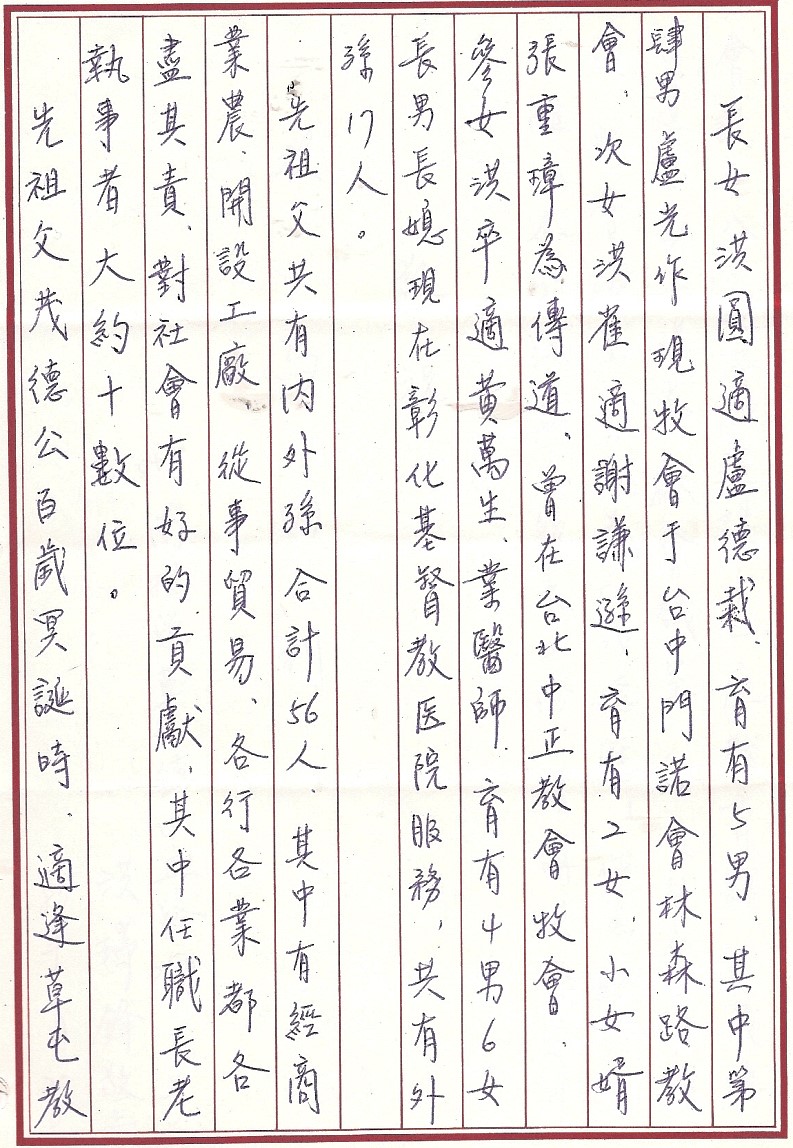 長女洪圓適盧德栽、育有5男、其中第
肆男盧光作現牧會于台中門諾會林森路教
會、次女洪雀適謝謙遜、育有2女、小女婿
張重璋為傳道、曾在台北中正教會牧會、
參女洪卒適黃萬生、業醫師、育有4男6女
長男長媳現在彰化基督教医院服務、共有外
孫17人。
先祖父共有內外孫合計56人、其中有經商
業農、開設工廠、從事貿易、各行各業都各
盡其責、對社會有好的貢獻、其中任職長老
執事者大約十數位。
先祖父茂德公百歲冥誕時、適逢草屯教